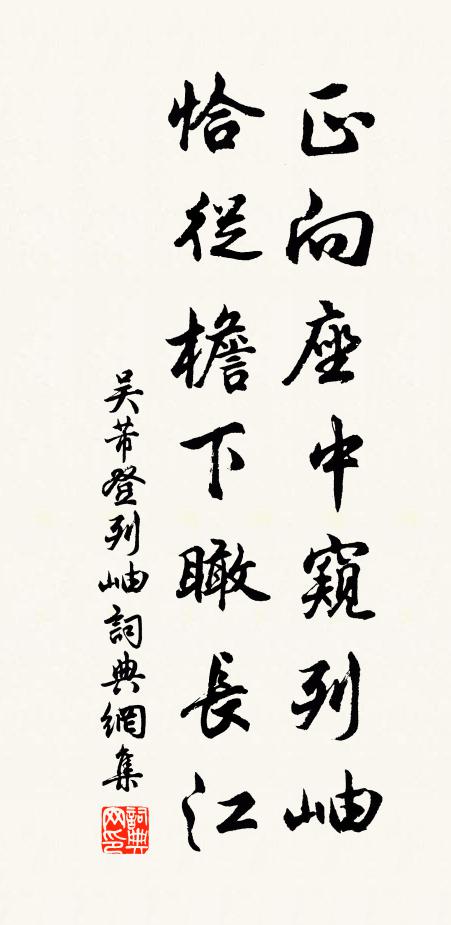 正向座中窺列岫
恰從檐下瞰長江
吴芾登列岫詞典網集
詞典网印